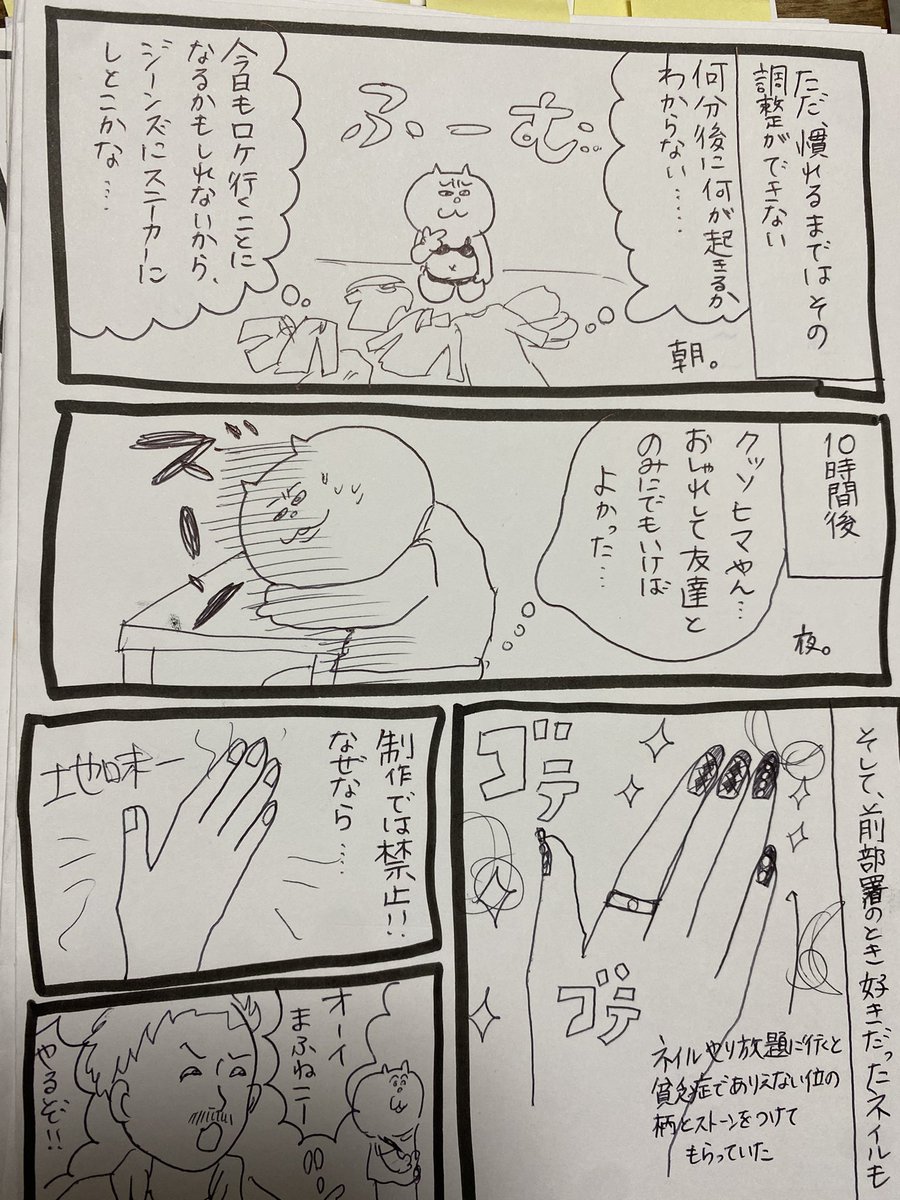 ただ、慣れるまではその
調整ができない
何分後に何が起きるか
わからない‥‥
ふーむ…
今日もロケ行くことに
なるかもしれないから、
ジーンズにスニーカーに
しとこかな‥‥
朝。
10時間後
クッソヒマやん…
おしゃれして友達と
のみにでもいけば
よかった‥‥
ズーン
夜。
そして、前部署のとき好きだったネイルも
ゴテ
ゴテ
ネイルやり放題に行くと
貧乏症でありえない位の
柄とストーンをつけて
もらっていた
制作では禁止!!
なぜなら‥‥
地味ー
オーイ
まふねこー
やるぞ!!